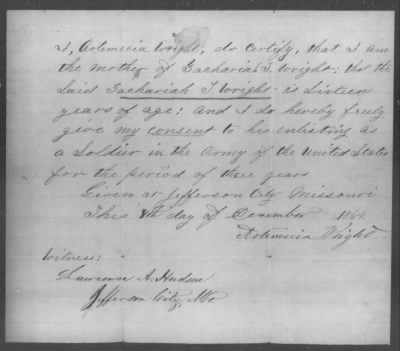 I, Artemicia Wright, do certify, that I am
the mother of Zachariah T. Wright; that the
Said Zachariah T Wright is Sixteen
years of age; and I do hereby freely
give my consent to his enlisting as
a Soldier in the Army of the United States
for the period of three years
Given at Jefferson City Missouri
This 8th day of December 1864
Artemicia Wright
Witness:
Lawrence A. Hudson
Jefferson City, Mo